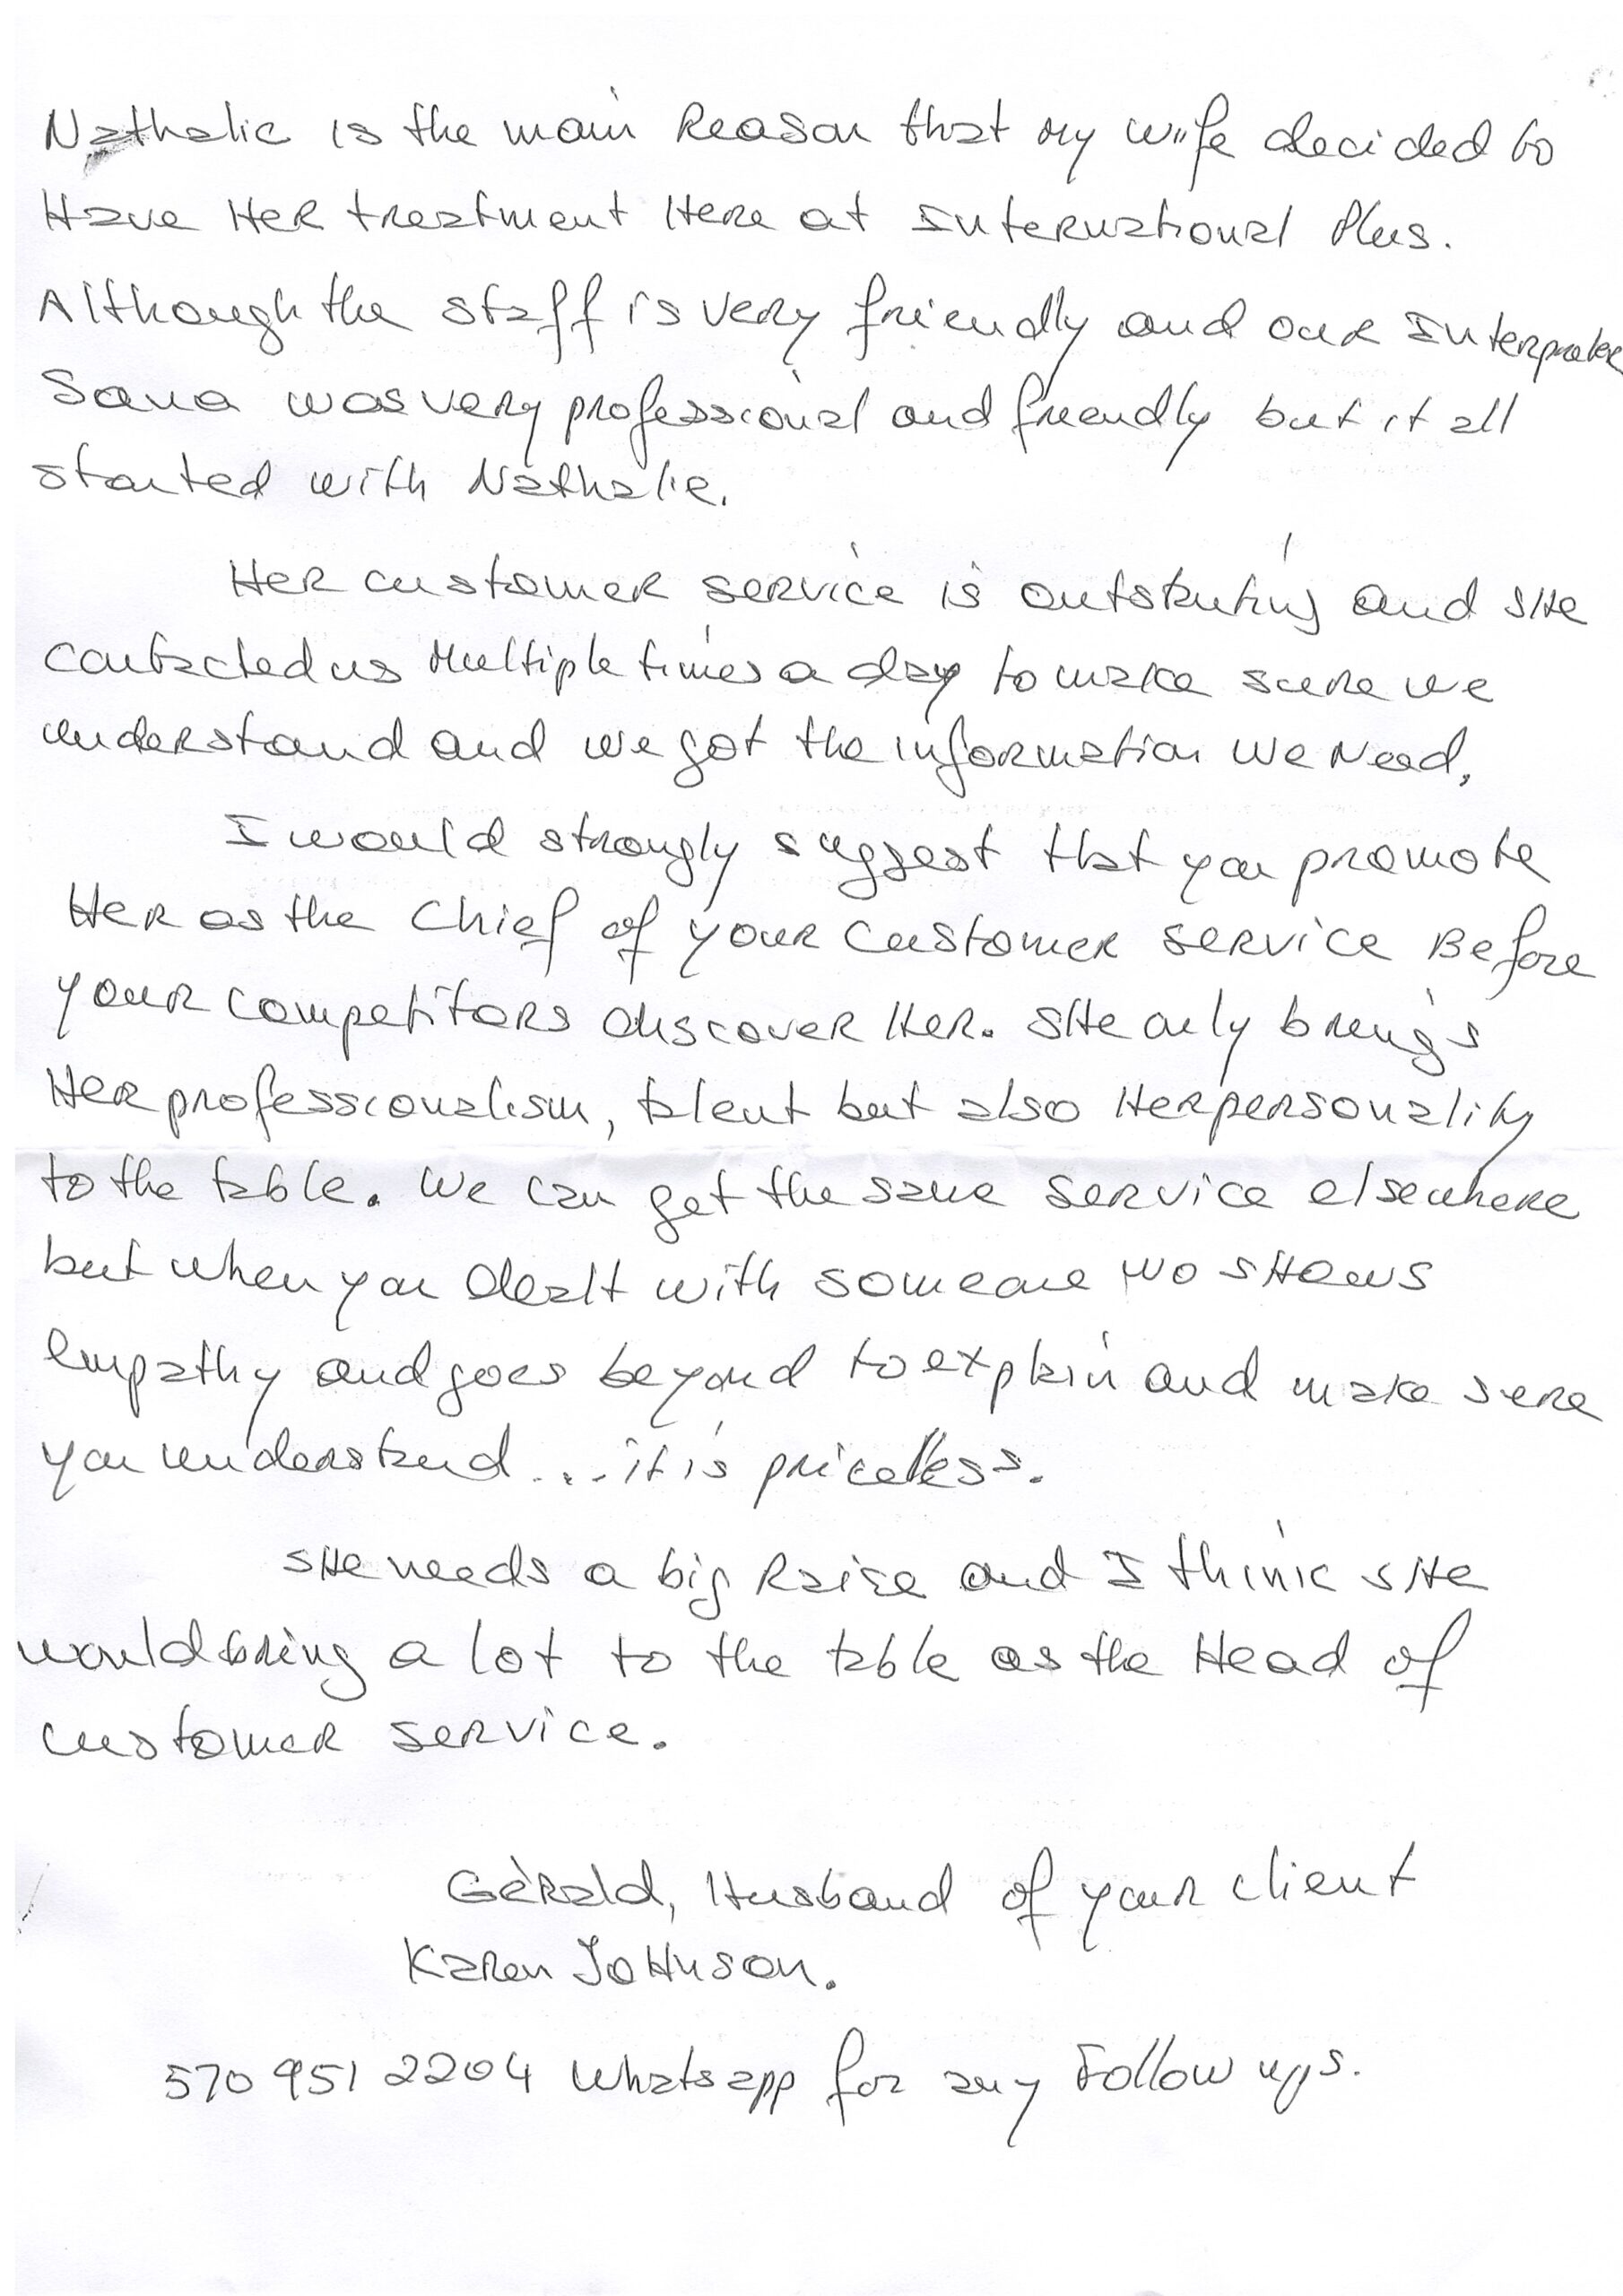 Nathalie is the main Reason that my wife decided to
Have Her treatment Here at International Plus.
Although the staff is very friendly and our Interpreter
Sana was very professional and friendly but it all
started with Nathalie.
Her customer service is outstanting and sHe
contacted us Multiple times a day to make sure we
understand and we got the information we Need,
I would strongly suggest that you promote
Her as the Chief of your customer service Before
your competitors discover Her. sHe only brings
Her professionalism, talent but also Her personality
to the table. We can get the same service elsewhere
but when you dealt with someone wo sHows
empathy and goes beyond to explain and make sure
you understand ... it is priceless.
sHe needs a big Raise and I think sHe
would bring a lot to the table as the Head of
customer service.
Gèrald, Husband of your client
Karen JoHnson.
570 951 2204 Whatsapp for any Follow ups.